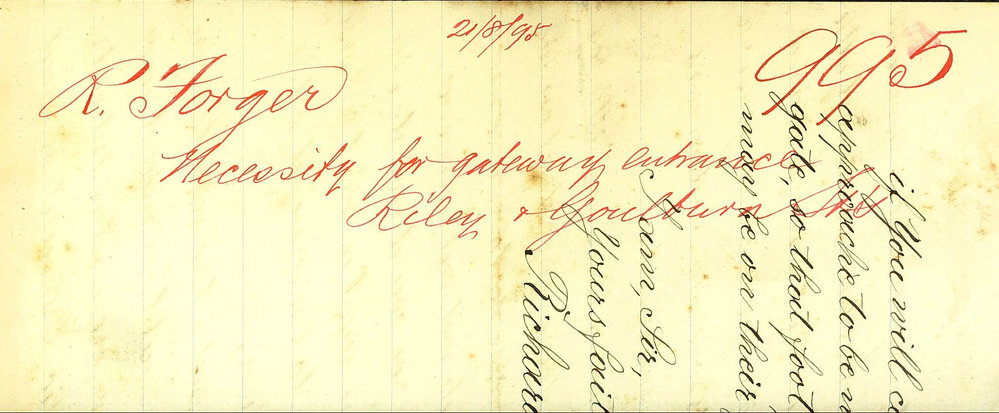 21/8/95
995
R. Forger
Necessity for gateway entrance
Riley & Goulburn Sts
if You will c
approache to be m
gate, so that foot
may be on their
I am, Sir,
Yours fait
Richar